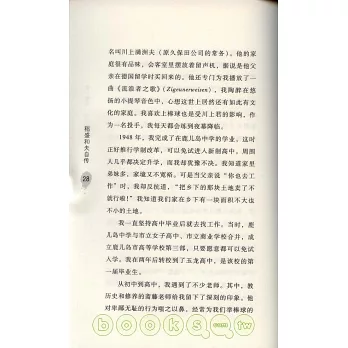 名叫川上满洲夫（原久保田公司的常务）。他的家
庭很有品味，会客室里摆放着留声机，据说是他父
亲在德国留学时买回来的。他还专门为我播放了一
曲《流浪者之歌》（Zigeunerweisen），我陶醉在悠
扬的小提琴音色中，心想这世上居然还有如此有文
化的家庭。我喜欢上棒球也是受川上君的影响。作
为一名投手，我每天都会练到夜幕降临。
1948 年，我完成了在鹿儿岛中学的学业。这时
正好推行学制改革，可以免试进入新制高中，周围
人几乎都决定升学，而我却犹豫不决。我知道家里
弟妹多，家境又不宽裕。可是当父亲说“你也去工
作”时，我却反抗道，“把乡下的那块土地卖了不
就行啦！”我知道我们家在乡下有一块面积不大也
不小的土地。
我一直坚持高中毕业后就去找工作。当时，鹿
儿岛中学与市立女子高中、市立商业学校合并，成
立鹿儿岛市高等学校第三部，只要愿意都可以免试
入学。我在两年后转校到了玉龙高中，是该校的第
一届毕业生。
从初中到高中，我遇到了不少老师。其中，教
历史和修养的斋藤老师给我留下了深刻的印象。他
对卑鄙无耻的行为嗤之以鼻，经常为我们掌棒球的
稻盛和夫自传
28
books.com.tw